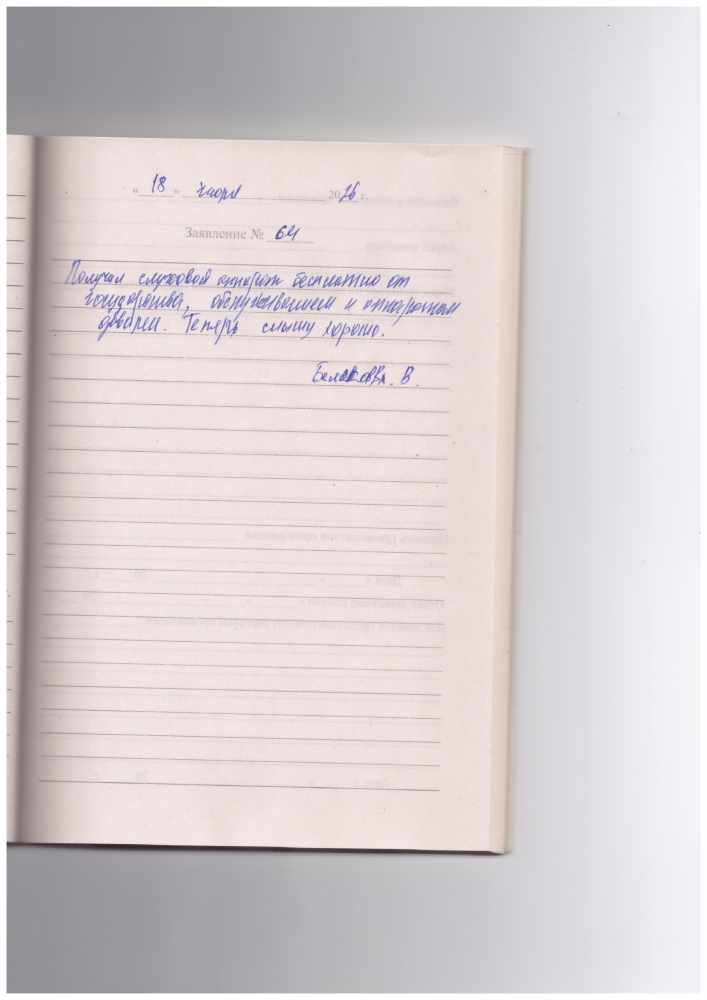 « 18 » марта 2016 г.
Заявление № 64
Получил слуховой аппарат бесплатно от
государства, обслуживанием и аппаратом
доволен. Теперь слышу хорошо.
В.